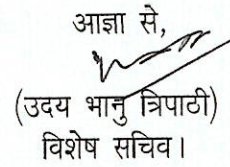 आज्ञा से,
(उदय भानु त्रिपाठी)
विशेष सचिव।